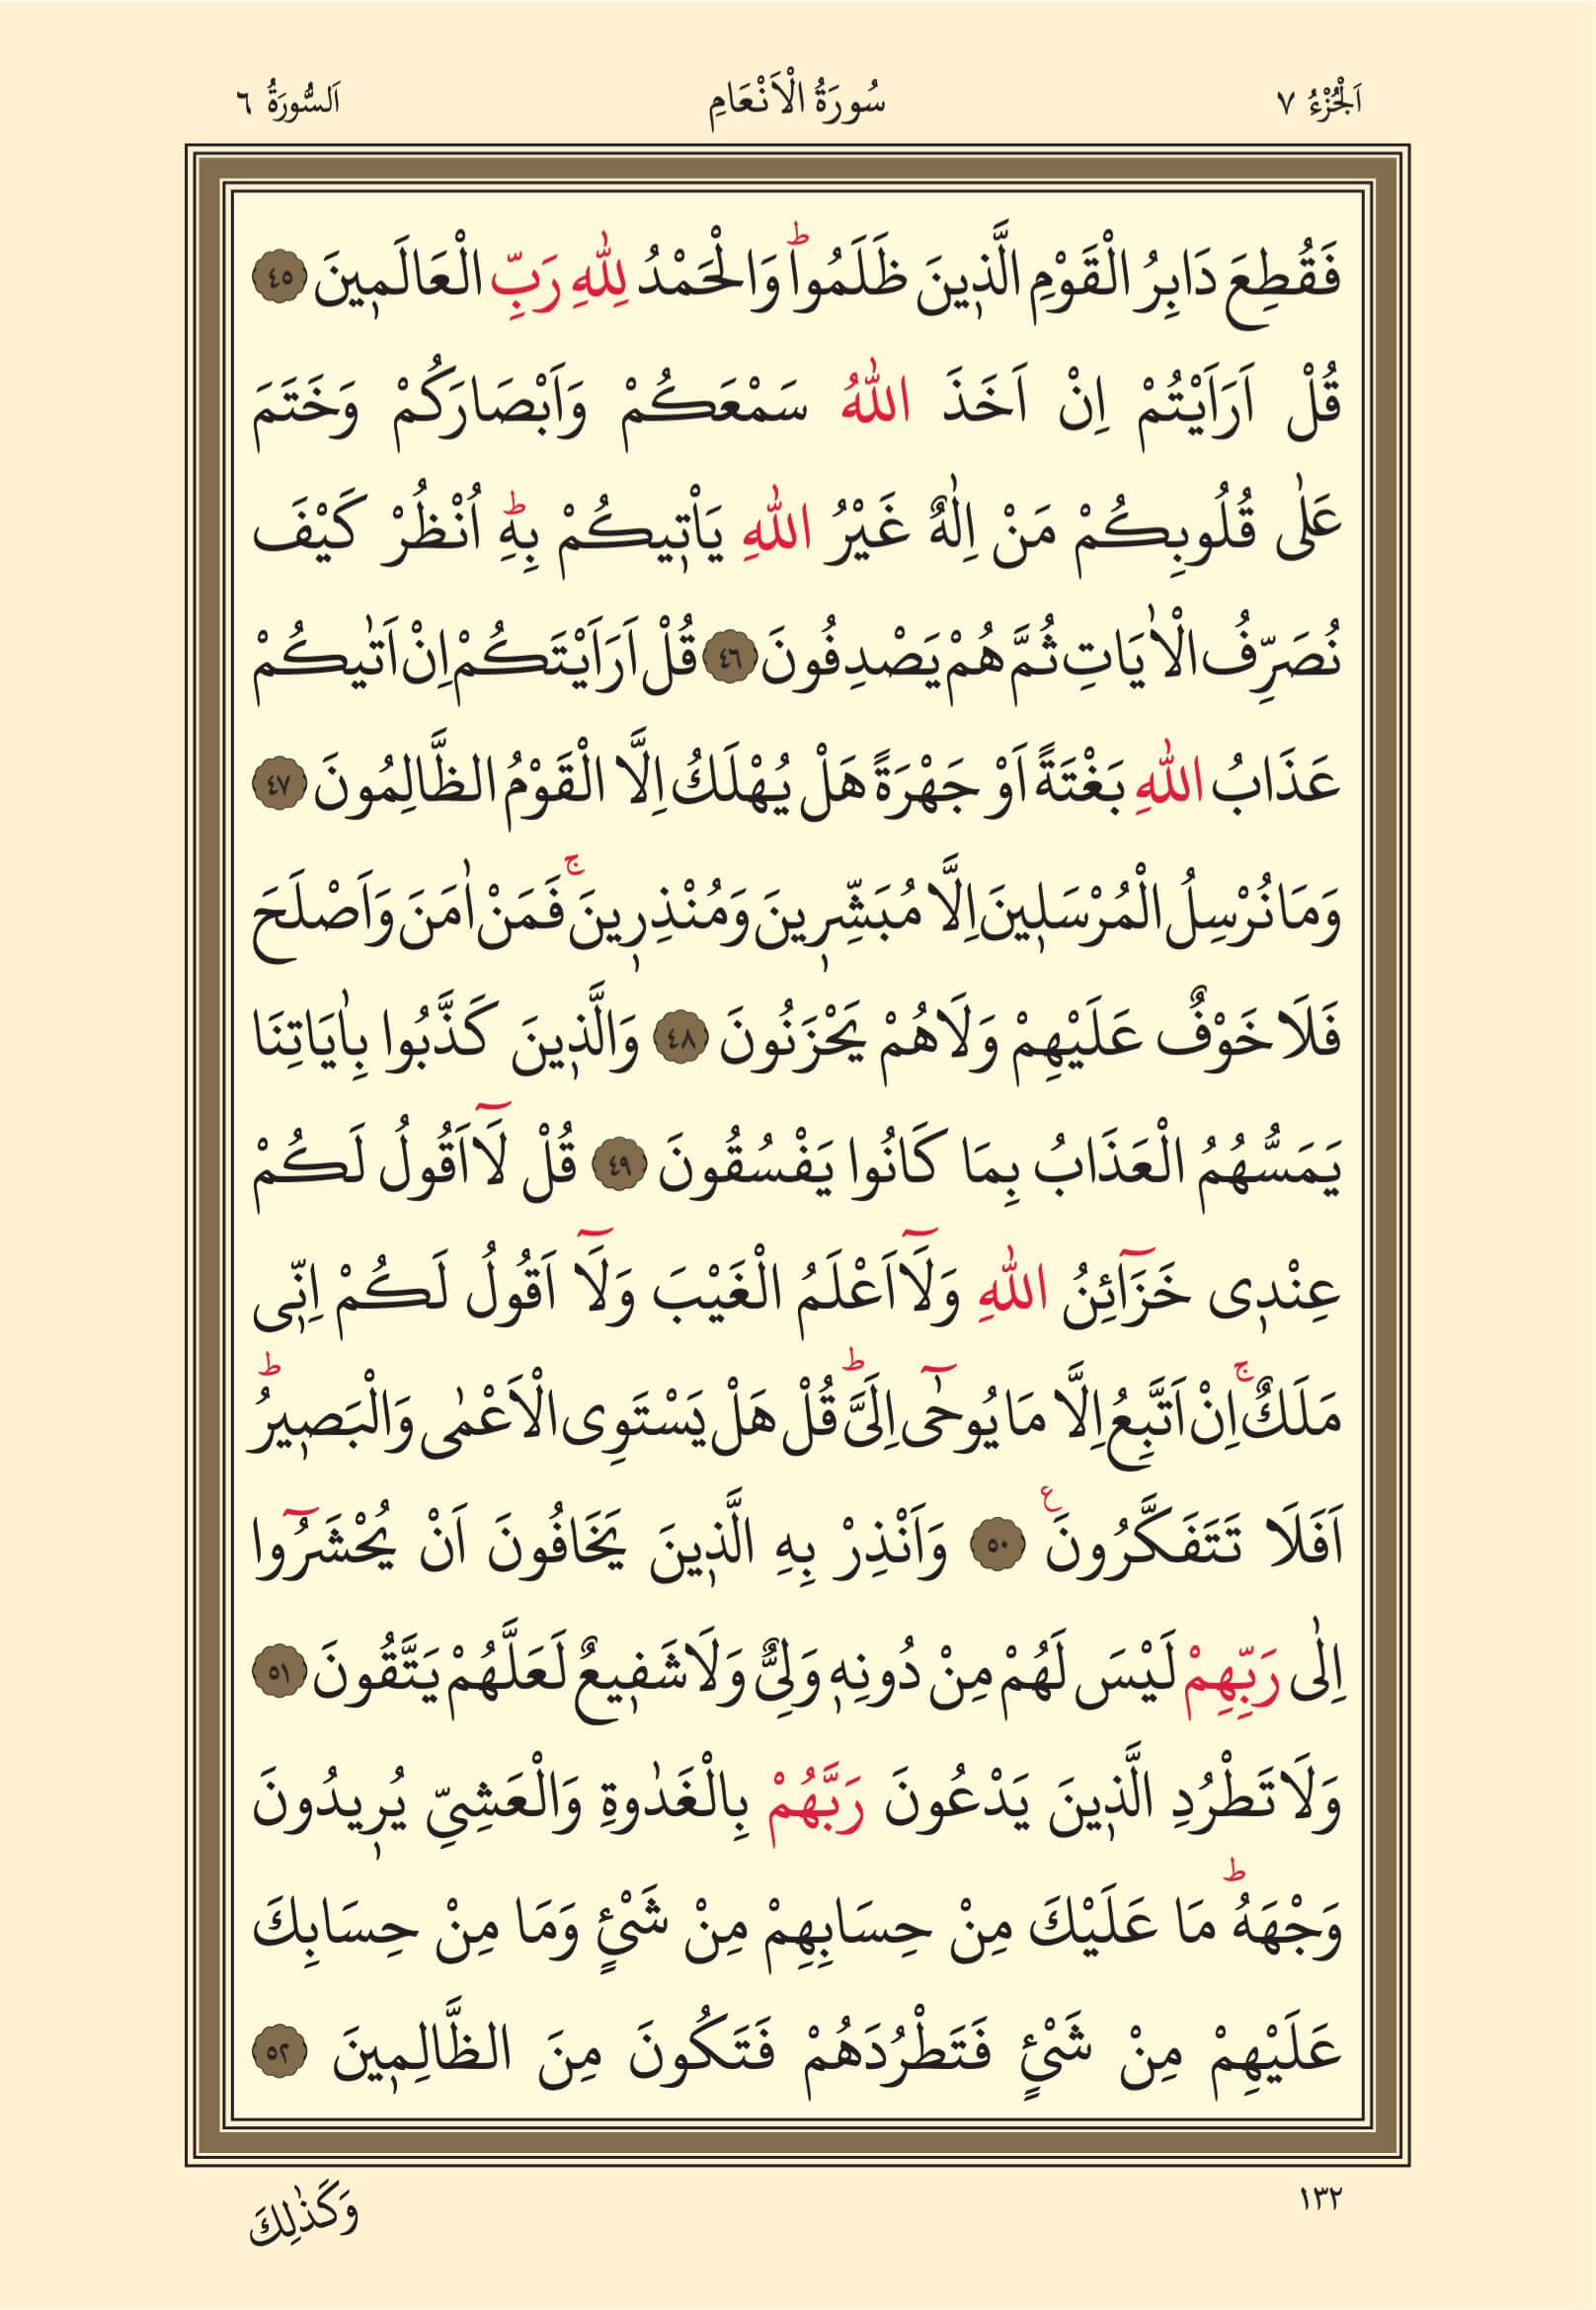 اَلْجُزْءُ ٧ سُورَةُ الْاَنْعَامِ اَلسُّورَةُ ٦
فَقُطِعَ دَابِرُ الْقَوْمِ الَّذ۪ينَ ظَلَمُواۜ وَالْحَمْدُ لِلّٰهِ رَبِّ الْعَالَم۪ينَ ٤٥
قُلْ اَرَاَيْتُمْ اِنْ اَخَذَ اللّٰهُ سَمْعَكُمْ وَاَبْصَارَكُمْ وَخَتَمَ
عَلٰى قُلُوبِكُمْ مَنْ اِلٰهٌ غَيْرُ اللّٰهِ يَأْت۪يكُمْ بِهِۜ اُنْظُرْ كَيْفَ
نُصَرِّفُ الْاٰيَاتِ ثُمَّ هُمْ يَصْدِفُونَ ٤٦ قُلْ اَرَاَيْتَكُمْ اِنْ اَتٰيكُمْ
عَذَابُ اللّٰهِ بَغْتَةً اَوْ جَهْرَةً هَلْ يُهْلَكُ اِلَّا الْقَوْمُ الظَّالِمُونَ ٤٧
وَمَا نُرْسِلُ الْمُرْسَل۪ينَ اِلَّا مُبَشِّر۪ينَ وَمُنْذِر۪ينَۚ فَمَنْ اٰمَنَ وَاَصْلَحَ
فَلَا خَوْفٌ عَلَيْهِمْ وَلَا هُمْ يَحْزَنُونَ ٤٨ وَالَّذ۪ينَ كَذَّبُوا بِاٰيَاتِنَا
يَمَسُّهُمُ الْعَذَابُ بِمَا كَانُوا يَفْسُقُونَ ٤٩ قُلْ لَٓا اَقُولُ لَكُمْ
عِنْد۪ي خَزَٓائِنُ اللّٰهِ وَلَٓا اَعْلَمُ الْغَيْبَ وَلَٓا اَقُولُ لَكُمْ اِنّ۪ي
مَلَكٌۚ اِنْ اَتَّبِعُ اِلَّا مَا يُوحٰٓى اِلَيَّۜ قُلْ هَلْ يَسْتَوِي الْاَعْمٰى وَالْبَص۪يرُۜ
اَفَلَا تَتَفَكَّرُونَ۟ ٥٠ وَاَنْذِرْ بِهِ الَّذ۪ينَ يَخَافُونَ اَنْ يُحْشَرُٓوا
اِلٰى رَبِّهِمْ لَيْسَ لَهُمْ مِنْ دُونِه۪ وَلِيٌّ وَلَا شَف۪يعٌ لَعَلَّهُمْ يَتَّقُونَ ٥١
وَلَا تَطْرُدِ الَّذ۪ينَ يَدْعُونَ رَبَّهُمْ بِالْغَدٰوةِ وَالْعَشِيِّ يُر۪يدُونَ
وَجْهَهُۜ مَا عَلَيْكَ مِنْ حِسَابِهِمْ مِنْ شَيْءٍ وَمَا مِنْ حِسَابِكَ
عَلَيْهِمْ مِنْ شَيْءٍ فَتَطْرُدَهُمْ فَتَكُونَ مِنَ الظَّالِم۪ينَ ٥٢
١٣٢ وَكَذٰلِكَ